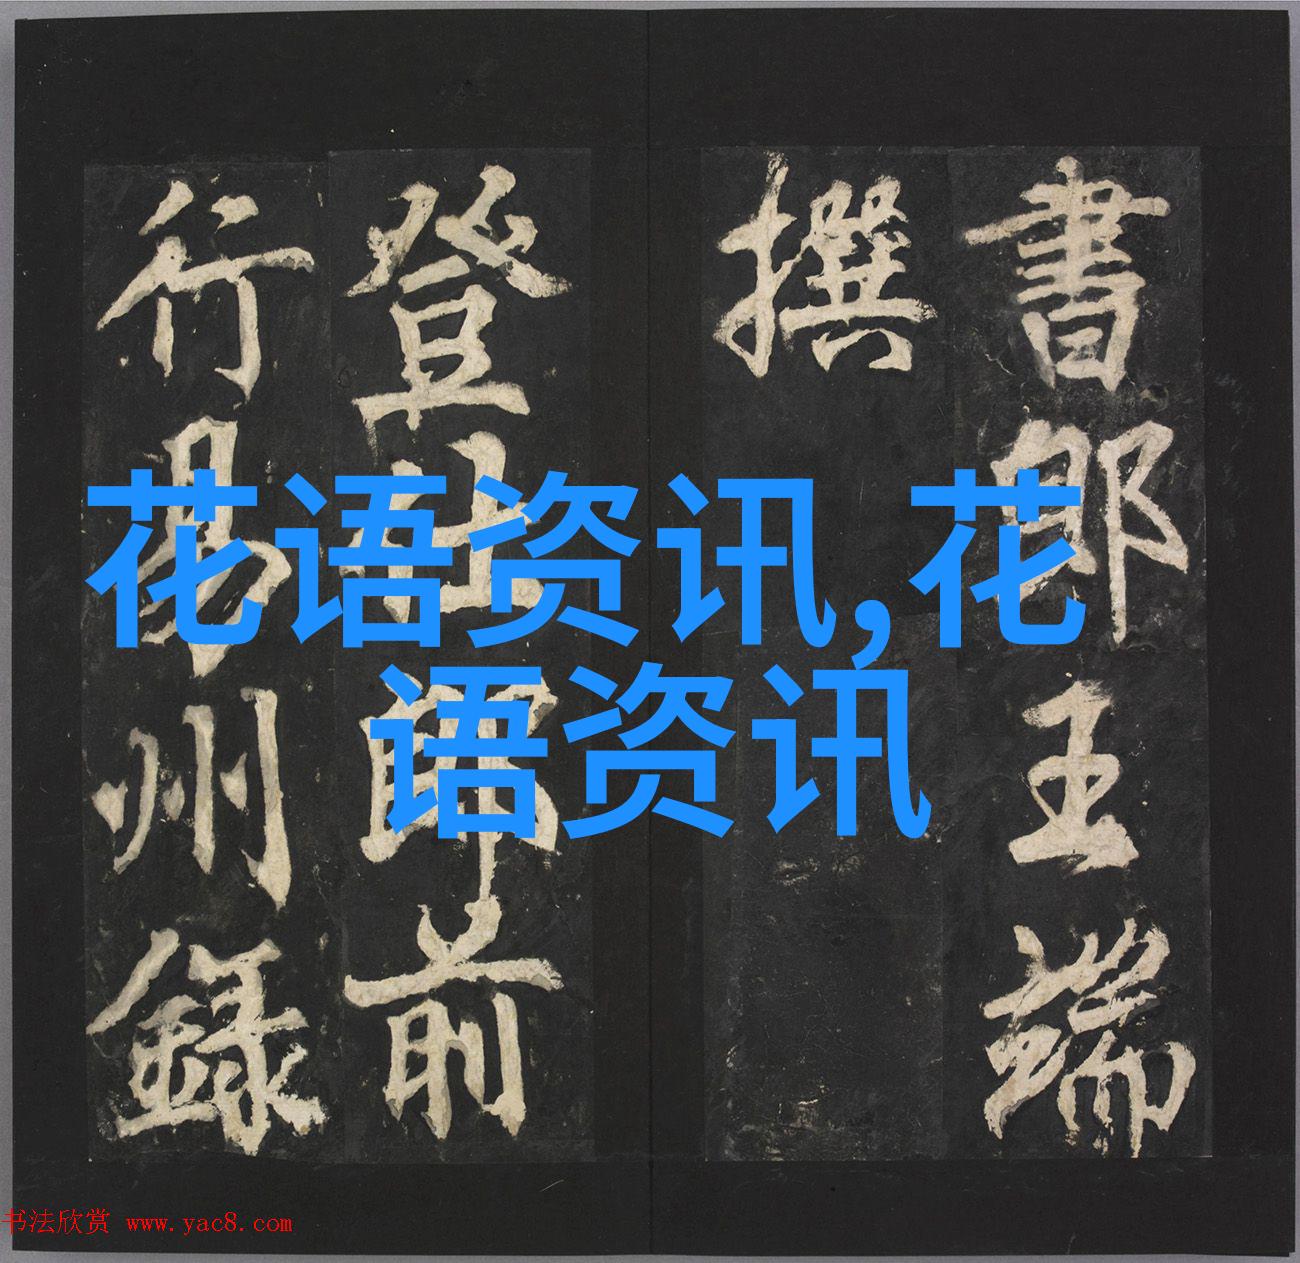 書郎王端
撰
登仕郎前
行易州錄
花语资讯,花
语资讯
书法欣赏 www.yac8.com